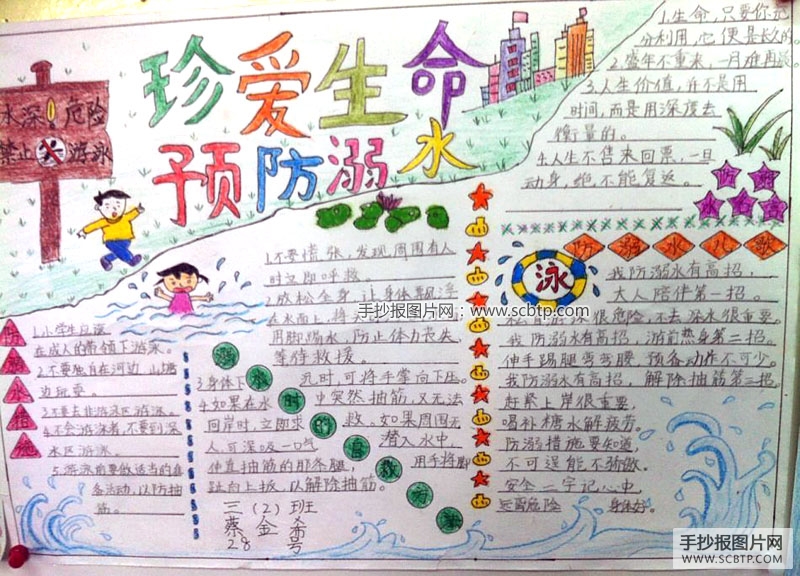 珍爱生命
预防溺水
水深 危险
禁止 游泳
1.生命,只要你充
分利用,它便是长久的。
2.盛年不重来,一月难再晨。
3.人生价值,并不是用
时间,而是用深度去
衡量的。
4.人生不售来回票,一旦
动身,绝不能复返。
防溺水措施
1.小学生应该
在成人的带领下游泳。
2.不要独自在河边、山塘
边玩耍。
3.不要去非游泳区游泳。
4.不会游泳者,不要到深
水区游泳。
5.游泳前要做适当的准
备活动,以防抽
筋。
溺水时的自救方法
1.不要慌张,发现周围有人
时立即呼救。
2.放松全身,让身体飘浮
在水面上,将
用脚踢水,防止体力丧失,
等待救援。
3.身体下沉时,可将手掌向下压。
4.如果在水中突然抽筋,又无法
回岸时,立即求救。如果周围无
人,可深吸一口气潜入水中,
伸直抽筋的那条腿,用手将脚
趾向上扳,以解除抽筋。
三(2)班
蔡金希
28号
泳
防溺水儿歌
我防溺水有高招,
大人陪伴第一招。
私自游泳很危险,不去深水很重要。
我防溺水有高招,游前热身第二招。
伸手踢腿弯弯腰,预备动作不可少。
我防溺水有高招,解除抽筋第三招。
赶紧上岸很重要,
喝补糖水解疲劳。
防溺措施要知道,
不可逞能不骄傲。
安全二字记心中,
远离危险 身体好。
手抄报图片网:www.scbtp.com
手抄报图片网
WWW.SCBTP.COM